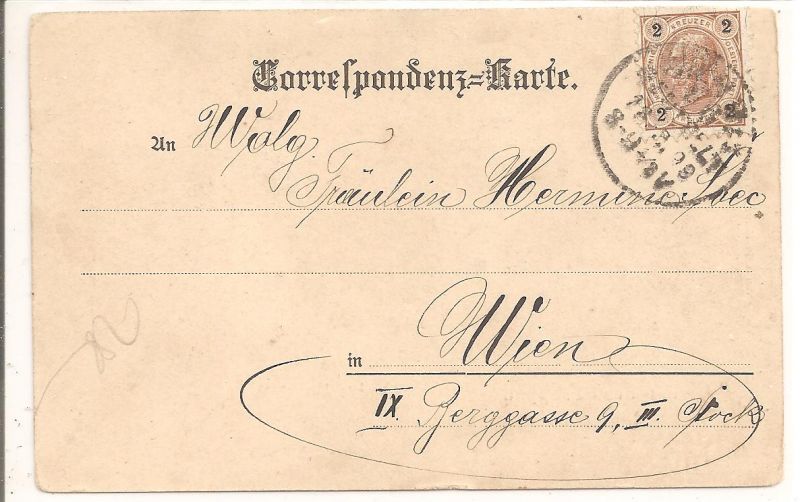 2 KREUZER 2
2 2
Correspondenz-Karte.
An Wolg.
Fräulein Hermine
in Wien
IX. Berggasse 9, III. Stock
82